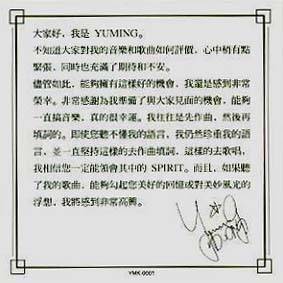 大家好，我是 YUMING。
不知道大家對我的音樂和歌曲如何評價，心中稍有點
緊張，同時也充滿了期待和不安。
儘管如此，能夠擁有這樣好的機會，我還是感到非常
榮幸。非常感謝為我準備了與大家見面的機會，能夠
一直搞音樂，真的很幸運。我往往是先作曲，然後再
填詞的。即使您聽不懂我的語言，我仍然珍重我的語
言，並一直堅持這樣的去作曲填詞，這樣的去歌唱，
我相信您一定能領會其中的 SPIRIT。而且，如果聽
了我的歌曲，能夠勾起您美好的回憶或對美妙風光的
浮想，我將感到非常高興。
YMK-0001